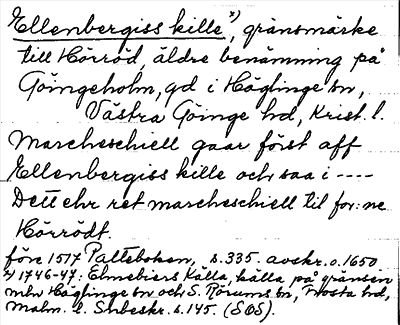 Ellenbergiss kille ×), gränsmärke
till Hörröd, äldre benämning på
Göingeholm, gd i Häglinge sn,
Västra Göinge hd, Krist. l.
Marcheschiell gaar först aff
Ellenbergiss kille och saa i ----
Dett ehr ret marcheschiell til for:ne
Hörrödt.
före 1517 Palteboken, s. 335. avskr. o. 1650
×) 1746-47: Elmebiers Källa, källa på gränsen
mln Häglinge sn och S. Rörums sn, Frosta hd,
Malm. l. Snbeskr. s. 145. (SOS).